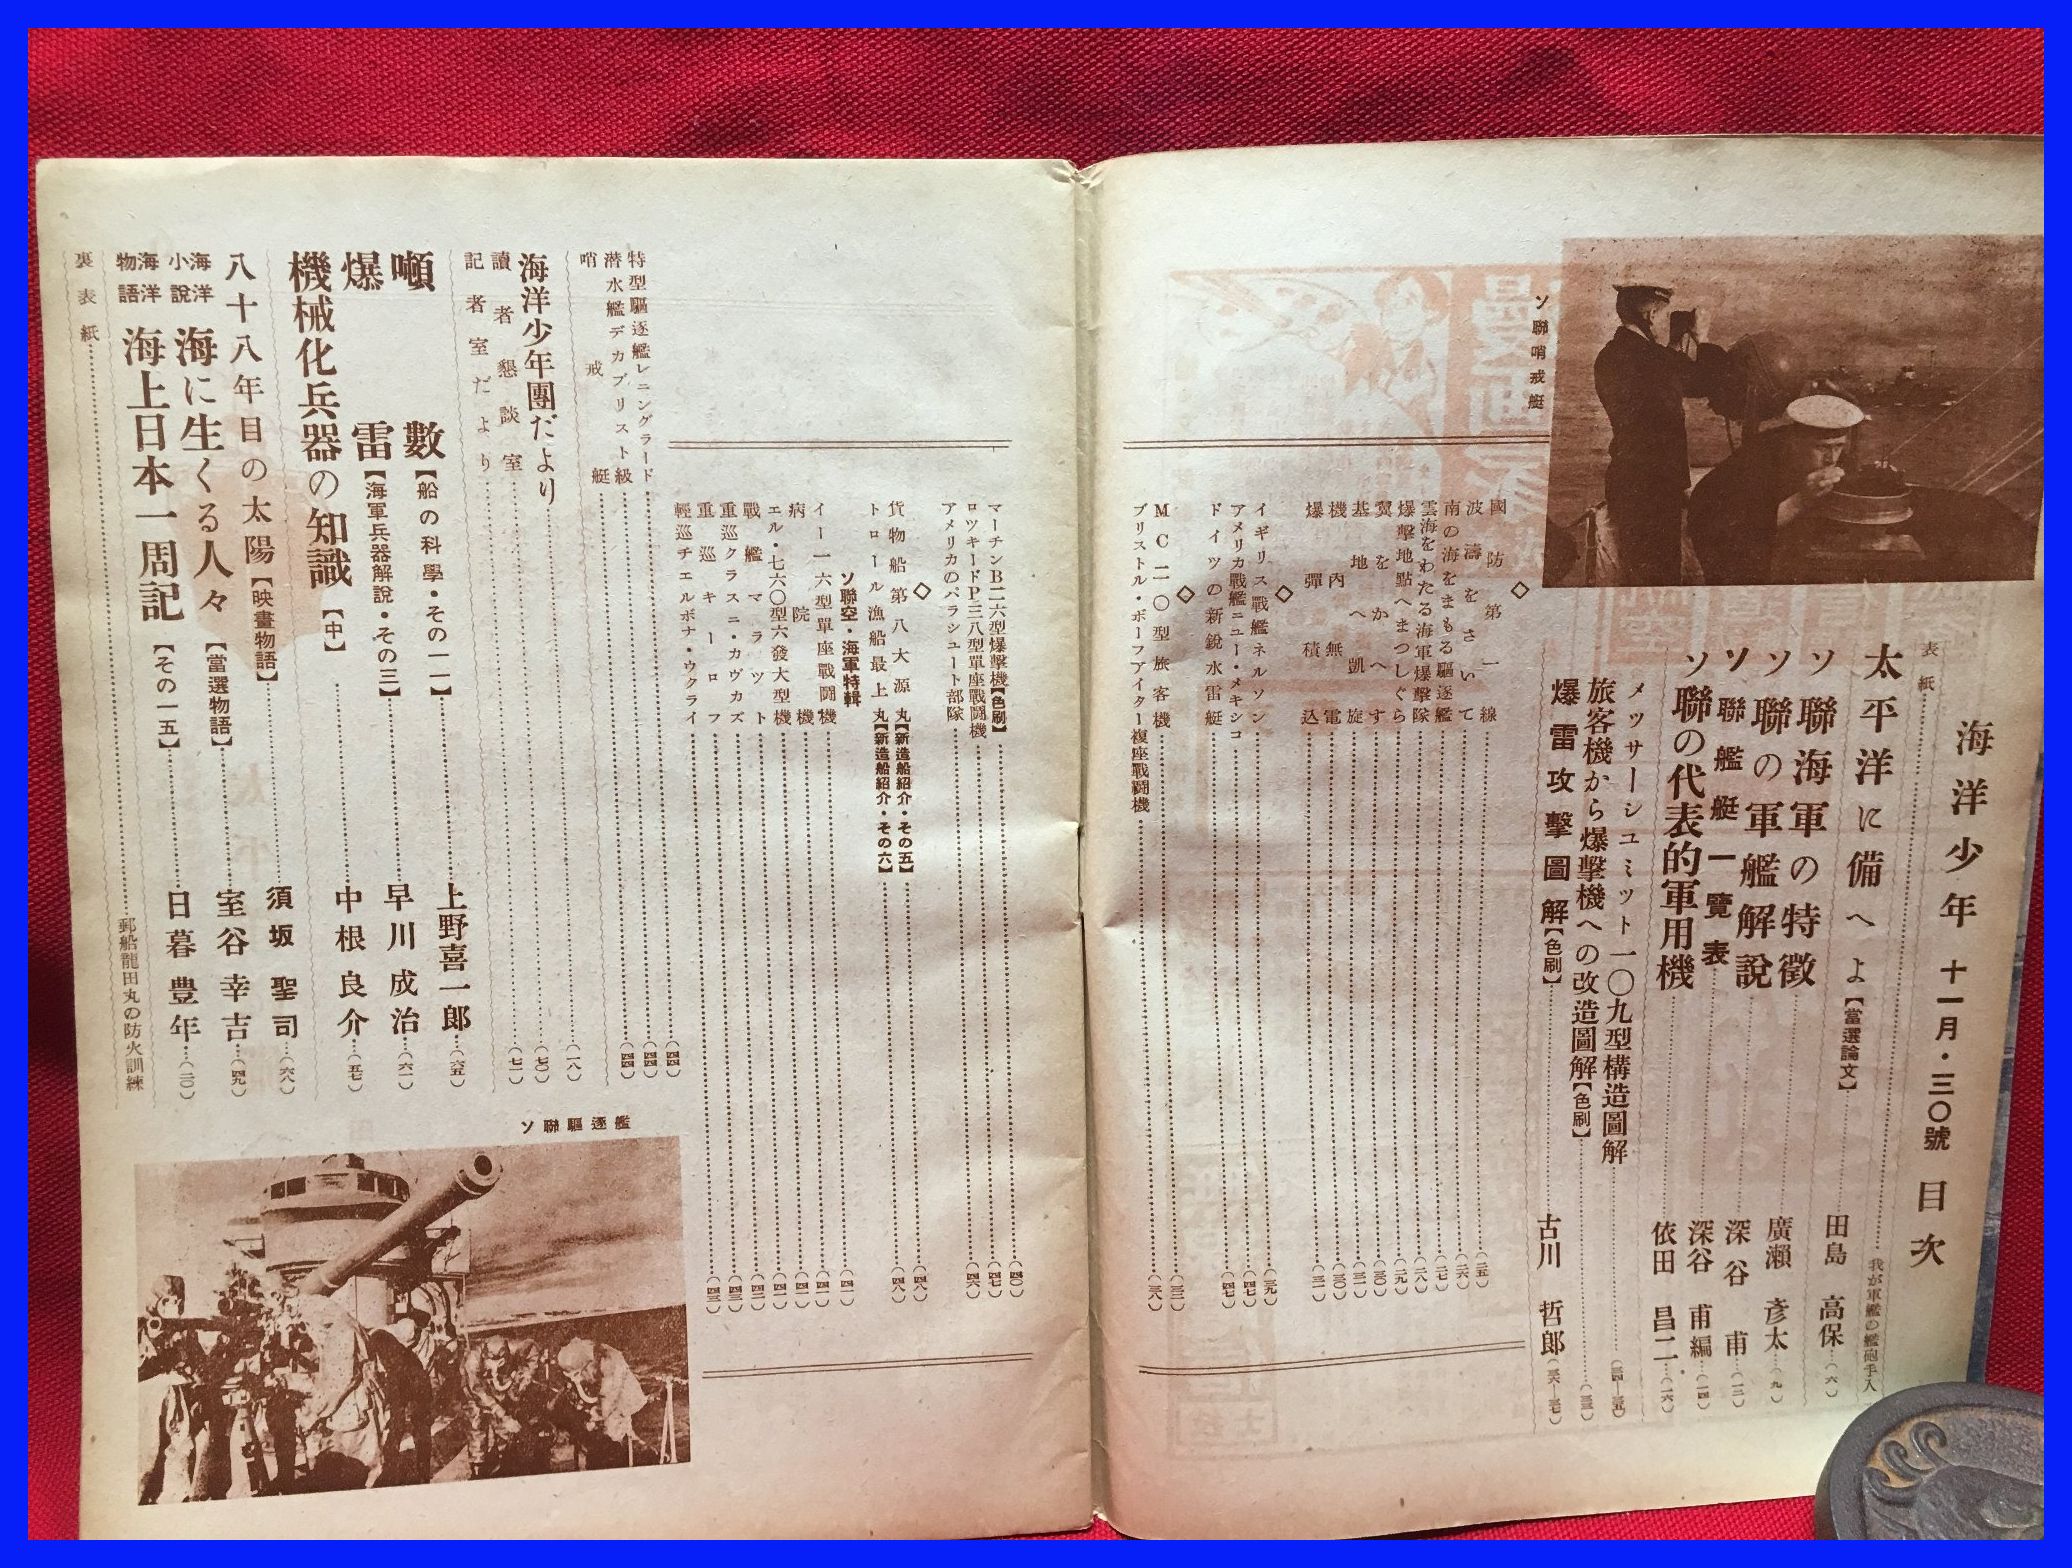 海洋少年 十一月・三〇號 目次
表紙 我が軍艦の艦砲手入
太平洋に備へよ【當選論文】 田島高保(六)
ソ聯海軍の特徴 廣瀬彦太(九)
ソ聯の軍艦解説 深谷甫(一二)
ソ聯艦艇一覽表 深谷甫編(一四)
ソ聯の代表的軍用機 依田昌二(一六)
メッサーシユミット一〇九型構造圖解(三四—三五)
旅客機から爆擊機への改造圖解【色刷】(三三)
爆雷攻擊圖解【色刷】 古川哲郎(三六—三七)
ソ聯哨戒艇
◇
國防第一線(二五)
波濤をさいて(二六)
南の海をまもる驅逐艦(二七)
雲海をわたる海軍爆擊隊(二八)
爆擊地點へまつしぐら(二九)
翼をかへす(三〇)
基地へ凱旋(三一)
機内無電(三〇)
爆彈積込(三一)
◇
イギリス戰艦ネルソン(三九)
アメリカ戰艦ニュー・メキシコ(四七)
ドイツの新鋭水雷艇(四七)
◇
MC二〇型旅客機(三二)
ブリストル・ボーフアイター複座戰鬪機(三八)
マーチンB二六型爆擊機【色刷】(四〇)
ロツキードP三八型單座戰鬪機(四七)
アメリカのパラシュート部隊(四六)
◇
貨物船第八大源丸【新造船紹介・その五】(四八)
トロール漁船最上丸【新造船紹介・その六】(四八)
ソ聯空・海軍特輯
イー一六型單座戰鬪機(四一)
病院機(四一)
エル・七六〇型六發大型機(四一)
戰艦マラツト(四二)
重巡クラスニ・カヴカズ(四三)
重巡キーロフ(四三)
輕巡チエルボナ・ウクライ(四三)
特型驅逐艦レニングラード(四四)
潜水艦デカブリスト級(四四)
哨戒艇(四四)
海洋少年團だより(一八)
讀者懇談室(七〇)
記者室だより(七一)
噸數【船の科學・その一一】 上野喜一郎(六五)
爆雷【海軍兵器解說・その三】 早川成治(六二)
機械化兵器の知識【中】 中根良介(五七)
八十八年目の太陽【映畫物語】 須坂聖司(六八)
海洋小說 海に生くる人々【當選物語】 室谷幸吉(四九)
海洋物語 海上日本一周記【その一五】 日暮豊年(二〇)
裏表紙 郵船龍田丸の防火訓練
ソ聯驅逐艦